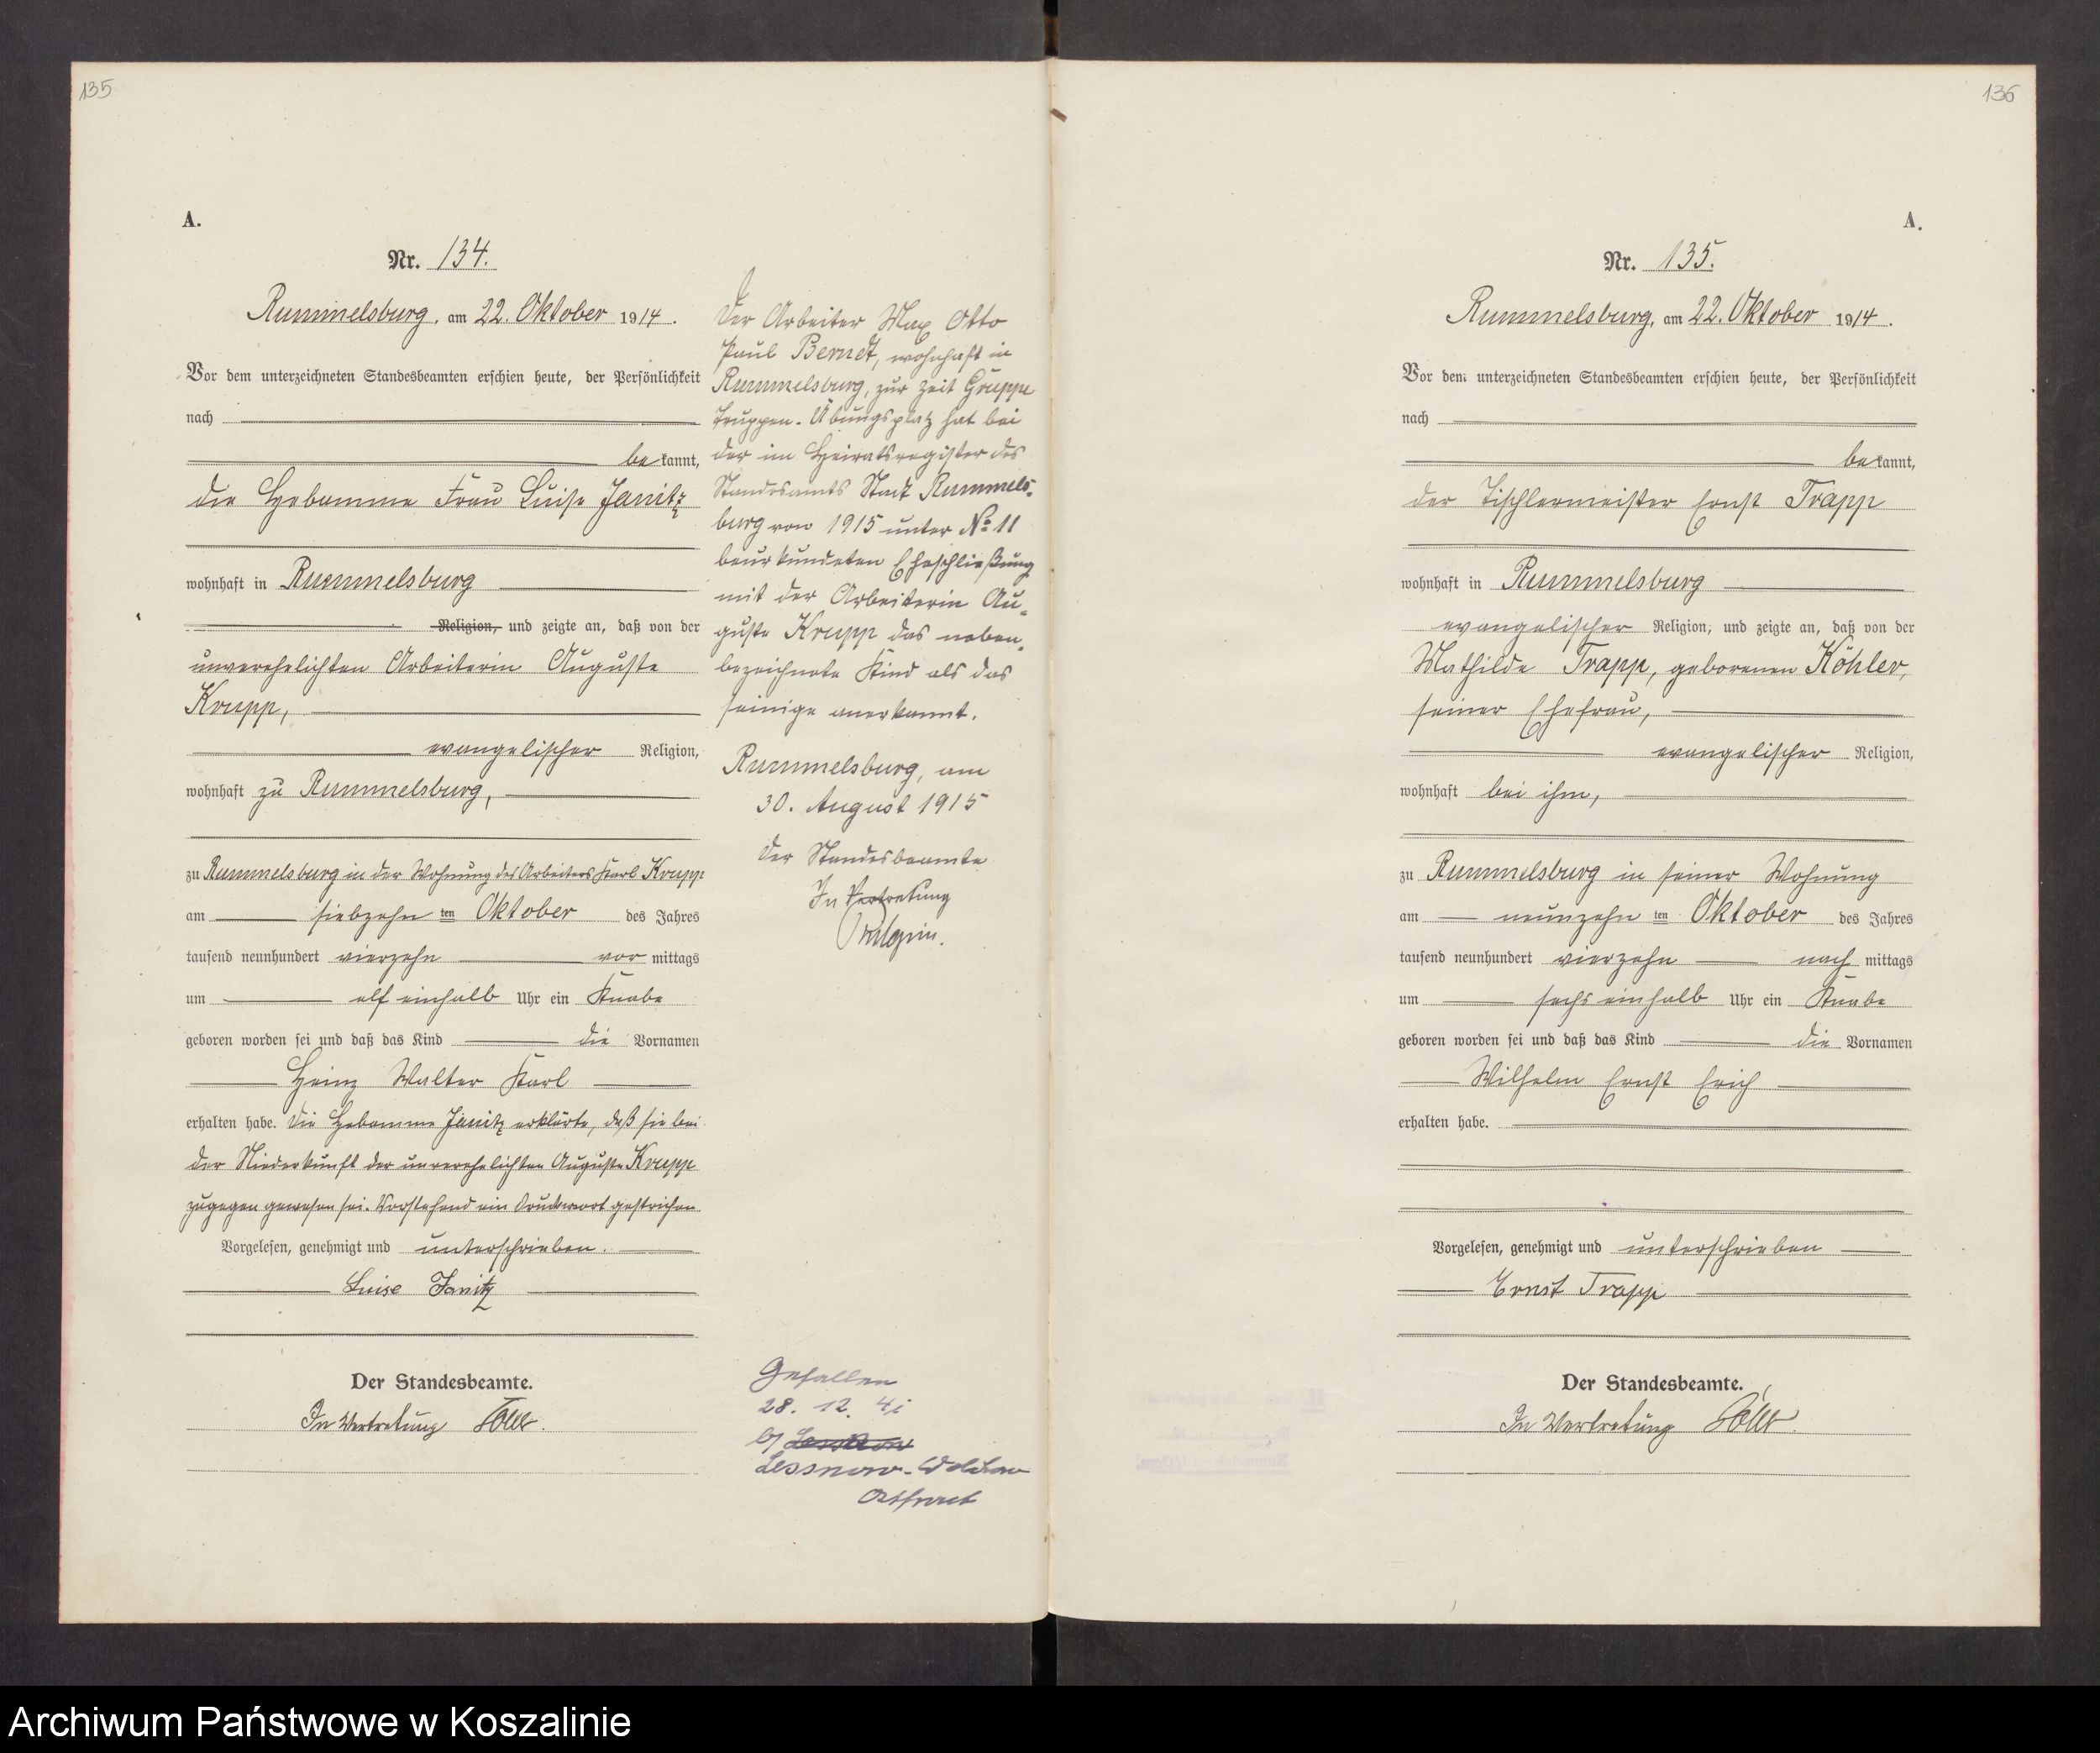 135
A.
Nr. 134.
Rummelsburg, am 22. Oktober 1914.
Vor dem unterzeichneten Standesbeamten erschien heute, der Persönlichkeit
nach
bekannt,
die Hebamme Frau Luise Janitz
wohnhaft in Rummelsburg
Religion, und zeigte an, daß von der
unverehelichten Arbeiterin Auguste
Krupp,
evangelischer Religion,
wohnhaft zu Rummelsburg,
zu Rummelsburg in der Wohnung des Arbeiters Karl Krupp
am siebzehnten Oktober des Jahres
tausend neunhundert vierzehn vormittags
um elf einhalb Uhr ein Knabe
geboren worden sei und daß das Kind die Vornamen
Heinz Walter Karl
erhalten habe. Die Hebamme Janitz erklärte, daß sie bei
der Niederkunft der unverehelichten Auguste Krupp
zugegen gewesen sei. Vorstehend ein Druckwort gestrichen
Vorgelesen, genehmigt und unterschrieben.
Luise Janitz
Der Standesbeamte.
In Vertretung
Der Arbeiter Max Otto
Paul Berndt, wohnhaft in
Rummelsburg, zur Zeit Gruppe
Truppen-Übungsplatz hat bei
der im Heiratsregister des
Standesamts Stadt Rummels-
burg von 1915 unter No 11
beurkundeten Eheschließung
mit der Arbeiterin Au-
guste Krupp das neben-
bezeichnete Kind als das
seinige anerkannt.
Rummelsburg, am
30. August 1915
Der Standesbeamte
In Vertretung
Gefallen
28. 12. 41
b/
Lessnow-
Ostfront
136
A.
Nr. 135.
Rummelsburg, am 22. Oktober 1914.
Vor dem unterzeichneten Standesbeamten erschien heute, der Persönlichkeit
nach
bekannt,
der Tischlermeister Ernst Trapp
wohnhaft in Rummelsburg
evangelischer Religion, und zeigte an, daß von der
Mathilde Trapp, geborenen Köhler,
seiner Ehefrau,
evangelischer Religion,
wohnhaft bei ihm,
zu Rummelsburg in seiner Wohnung
am neunzehnten Oktober des Jahres
tausend neunhundert vierzehn nachmittags
um sechs einhalb Uhr ein Knabe
geboren worden sei und daß das Kind die Vornamen
Wilhelm Ernst Erich
erhalten habe.
Vorgelesen, genehmigt und unterschrieben
Ernst Trapp
Der Standesbeamte.
In Vertretung
Archiwum Państwowe w Koszalinie